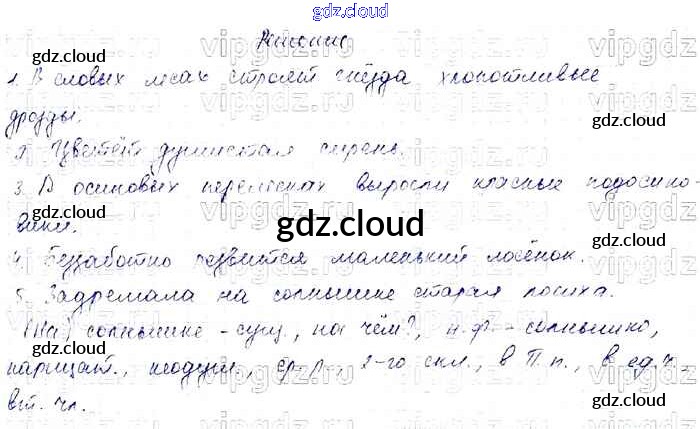 gdz.cloud
Решение
gdz.cloud vipgdz gdz.cloud
1. В еловых лесах строят гнёзда хлопотливые
дрозды.
gdz.cloud
2. Цветёт душистая сирень.
3. В осиновых перелесках выросли красные подосино-
вики.
gdz.cloud
gdz.cloud
gdz.cloud
4. Беззаботно резвится маленький лосёнок.
5. Задремала на солнышке старая лосиха.
(На) солнышке - сущ., на чём?, н.ф. - солнышко,
gdz.cloud
gdz.cloud
нарицат., неодуш., ср.р., 2-го скл., в П.п., в ед.ч.,
вт. чл.
gdz.cloud